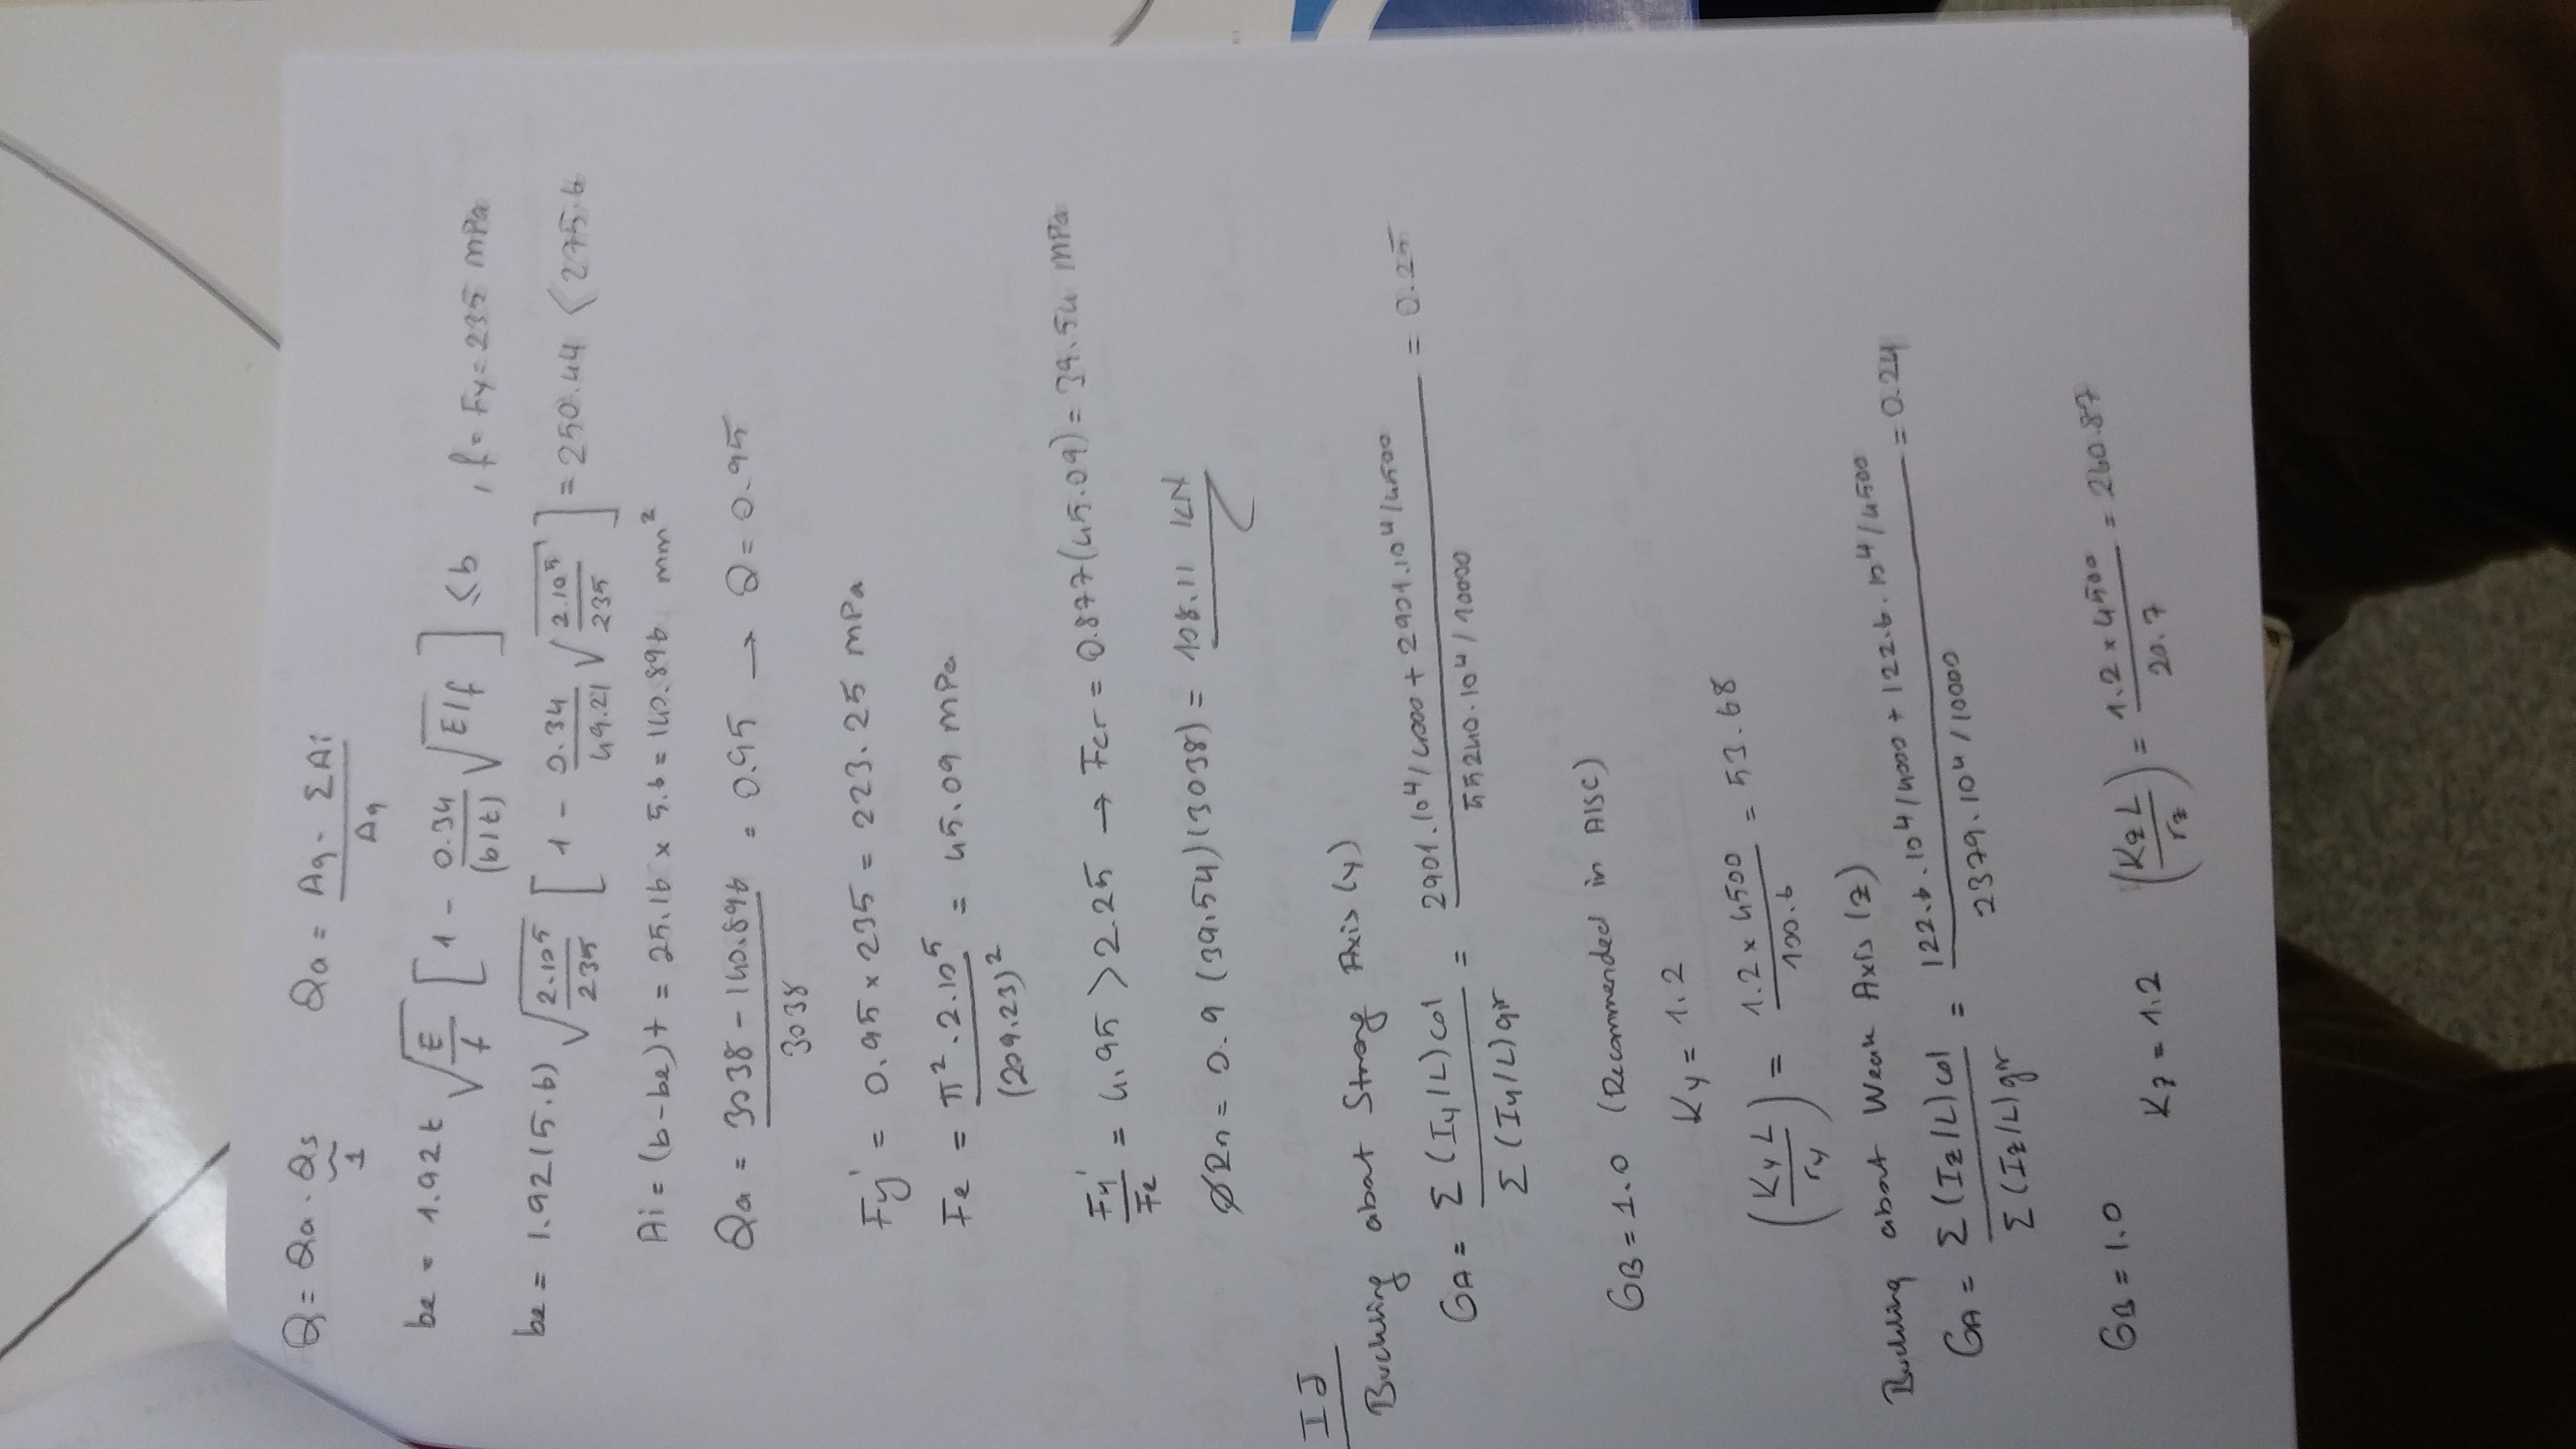 Q = Qa . Qs      Qa = (Ag - ΣAi) / Ag
1
be = 1.92t √(E/f) [1 - 0.34/(b/t) √(E/f)] ≤ b , f = Fy = 235 mPa
be = 1.92(5.6) √(2.10⁵/235) [1 - 0.34/49.21 √(2.10⁵/235)] = 250.44 < 275.6
Ai = (b-be)t = 25.16 x 5.6 = 140.896 mm²
Qa = (3038 - 140.896) / 3038 = 0.95 → Q = 0.95
Fy' = 0.95 x 235 = 223.25 mPa
Fe = π².2.10⁵ / (209.23)² = 45.09 mPa
Fy'/Fe = 4.95 > 2.25 → Fcr = 0.877(45.09) = 39.54 mPa
ØRn = 0.9 (39.54)(3038) = 108.11 kN
IJ
Buckling about Strong Axis (y)
GA = Σ(Iy/L)col / Σ(Iy/L)gir = (2901.10⁴/4000 + 2901.10⁴/4500) / (55240.10⁴/10000) = 0.25
GB = 1.0 (Recommended in AISC)
Ky = 1.2
(KyL/ry) = (1.2 x 4500) / 100.6 = 53.68
Buckling about Weak Axis (z)
GA = Σ(Iz/L)col / Σ(Iz/L)gir = (122.6.10⁴/4000 + 122.6.10⁴/4500) / (2379.10⁴/10000) = 0.24
GB = 1.0
Kz = 1.2   (KzL/rz) = (1.2 x 4500) / 20.7 = 260.87